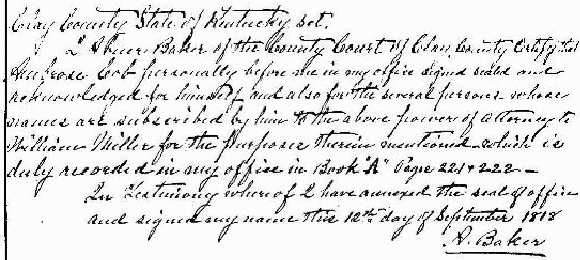 Clay County State of Kentucky Sct.
I Abner Baker of the County Court of Clay County Certify that
Ambrose Cob personally before me in my office signed sealed and
acknowledged for himself and also for the several persons whose
names are subscribed by him to the above power of attorney to
William Miller for the purpose therein mentioned which is
duly recorded in my office in Book "A" Page 221 & 222 —
In Testimony where of I have annexed the seal of office
and signed my name this 12th day of September 1818
A. Baker